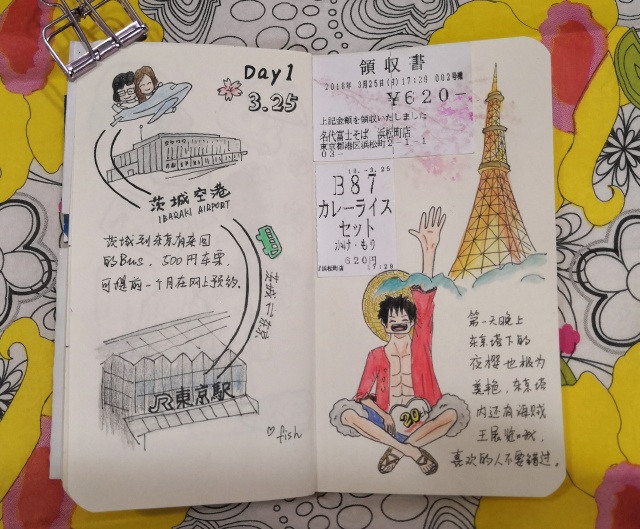 Day 1
3.25
茨城空港
IBARAKI AIRPORT
茨城到东京有来回
的Bus，500円车票，
可提前一个月在网上预约。
茨城⇌东京
JR東京駅
♡fish
領収書
2018年 3月25日(日)17:29 002号機
¥620-
上記金額を領収いたしました
名代富士そば 浜松町店
東京都港区浜松町2-1-1
03-
18.-3.25
B87
カレーライス
セット
かけ・もり
620円
浜松町店 17:29
20
第一天晚上
东京塔下的
夜樱也极为
美艳，东京塔
内还有海贼
王展览哦，
喜欢的人不要错过。